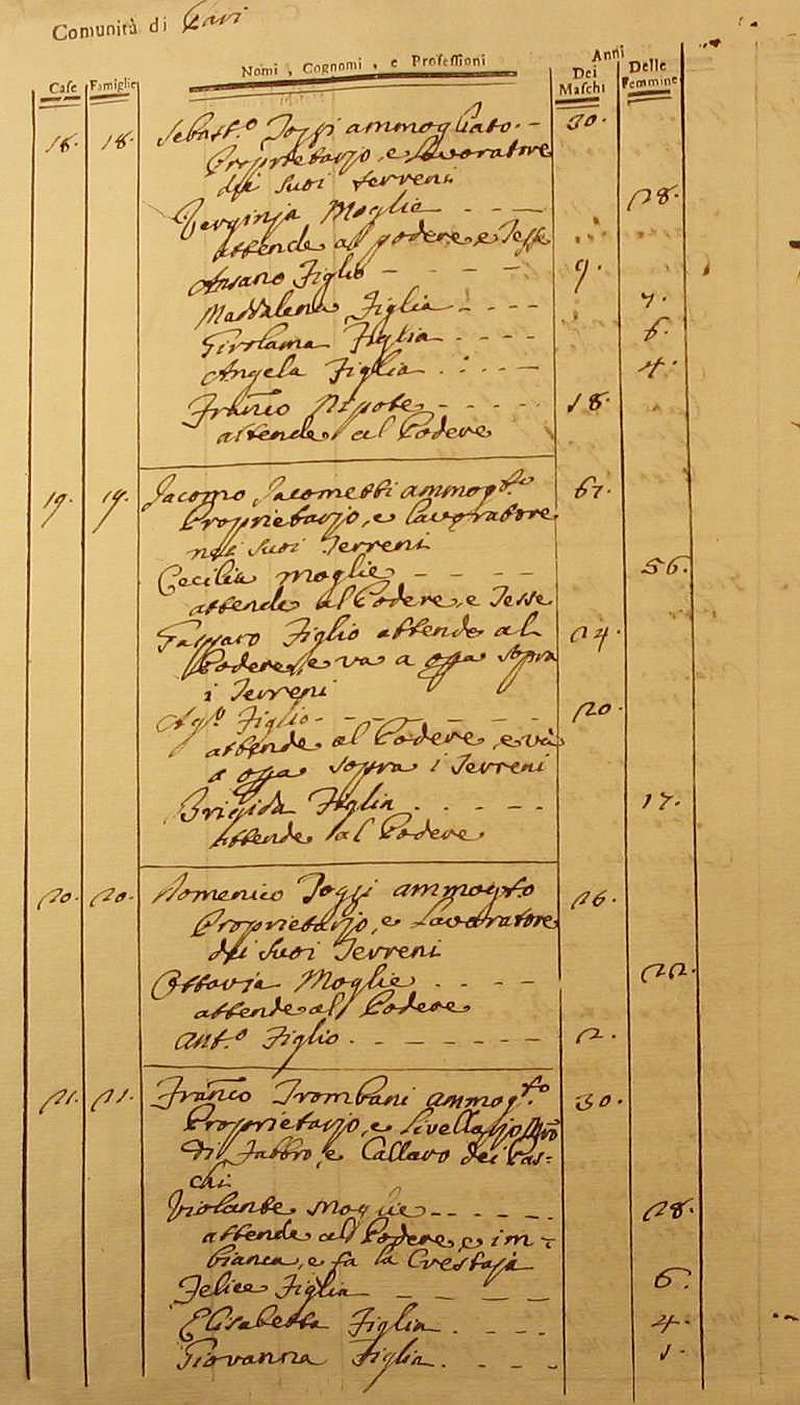 Comunità di Cavi
Case Famiglie Nomi, Cognomi, e Professioni Anni Dei Maschi Delle Femmine
18. 18. Sebast.o Toggi ammogliato 30.
Proprietarjo, e Lavoratore
dei suoi terreni
Verginja Moglie 28.
attende al podere e Tesse
Ansano Figlio 9.
Maddalena Figlia 7.
Girolama Figlia 6.
Angela Figlia 4.
Franco Nipote 18.
attende al Podere
19. 19. Jacomo Jacometti ammogt.o 61.
Proprietarjo, e lavoratore
nei suoi Terreni
Cecilia moglie 56.
attende al Podere, e Tesse
Figlio attende al 24.
Podere, e va a opa sopra
i Terreni
Ag.o Figlio 20.
attende al Podere, e và
a opa sopra i Terreni
Brigida Figlia 17.
attende al Podere
20. 20. Domenico Toggi ammogto 26.
Proprietarjo, e Lavoratore
dei suoi Terreni
Ottavja Moglie 22.
attende al Podere
Ant.o Figlio 2.
21. 21. Franco Trombani ammogt.o 30.
Proprietarjo, e Livellarjo
di Fabbro, e Callaro dei Pas=
chi
Violante Moglie 28.
attende al Podere e im=
bianca, e fa la Crestaja
Felice Figlia 6.
Elisabetta Figlia 4.
Giovanna Figlia 1.